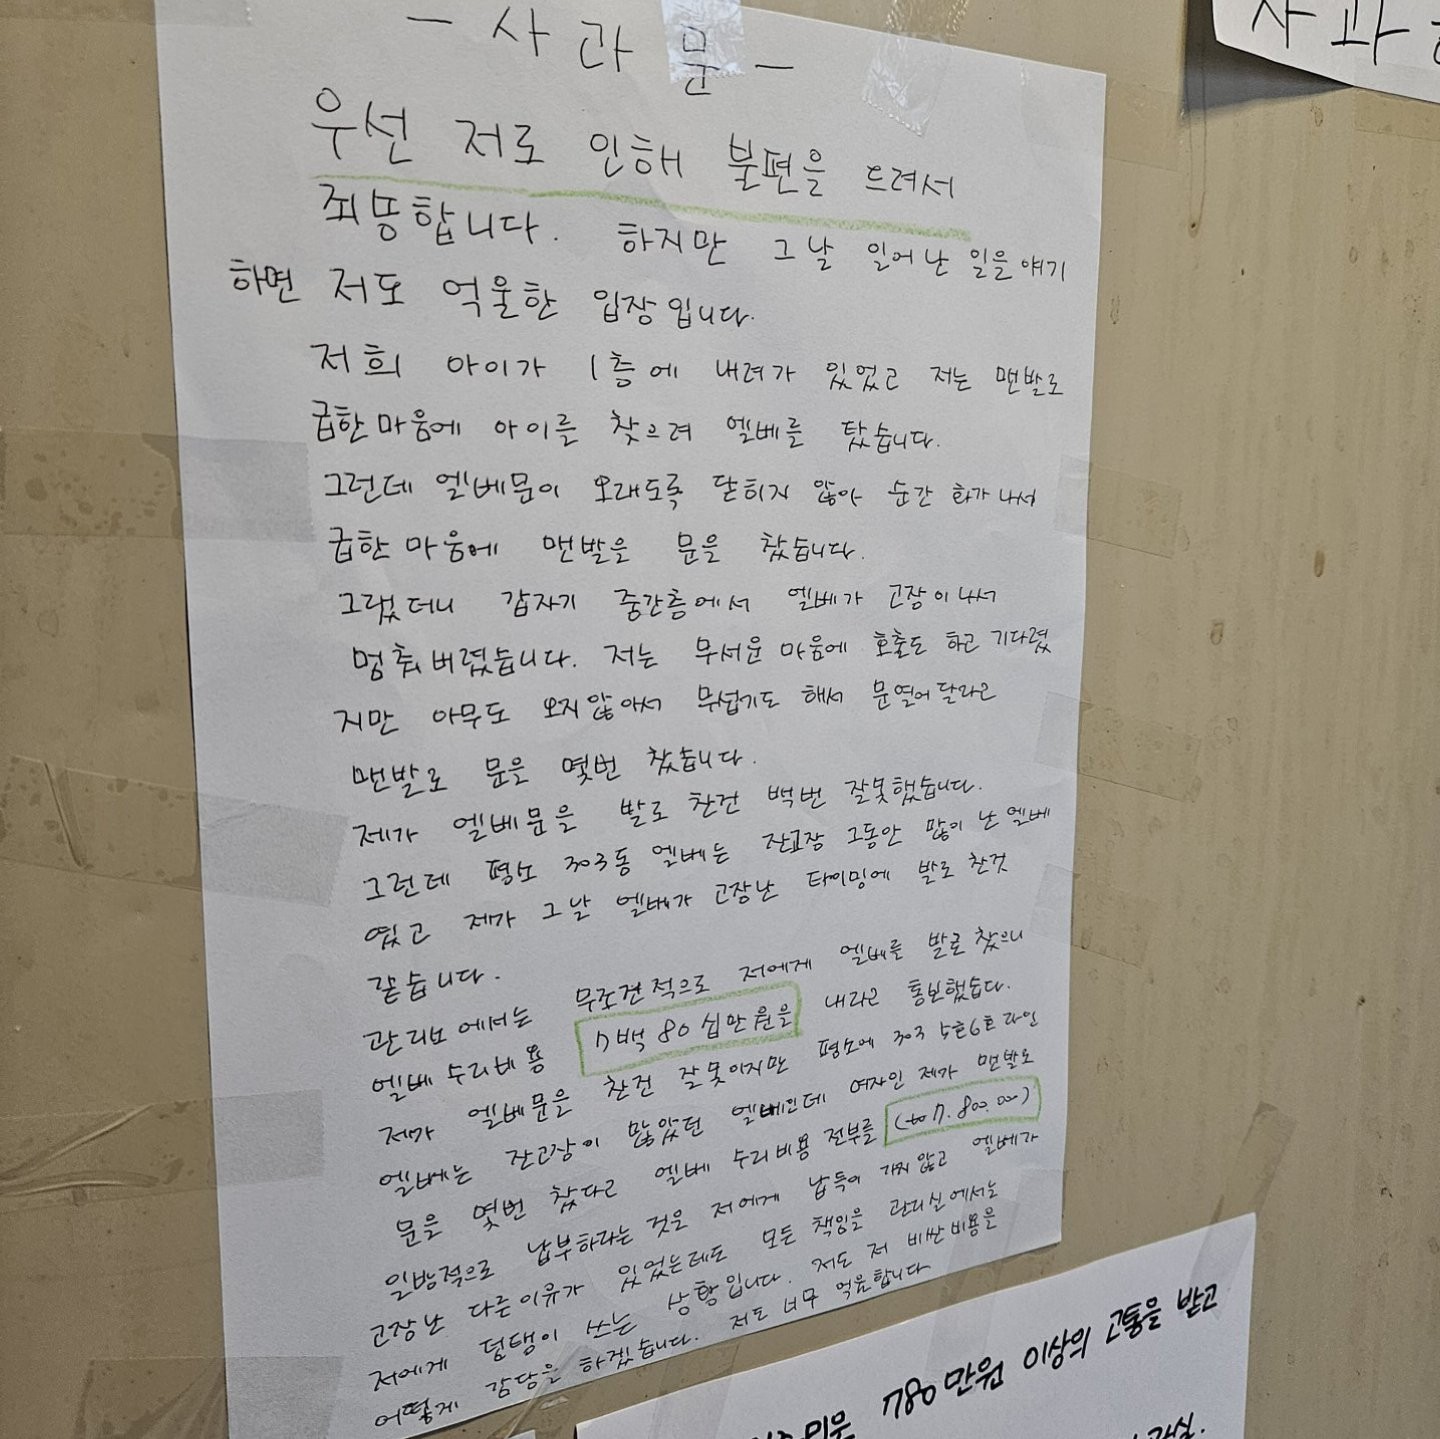 - 사 과 문 -
우선 저로 인해 불편을 드려서
죄송합니다. 하지만 그날 일어난 일을 얘기
하면 저도 억울한 입장입니다.
저희 아이가 1층에 내려가 있었고 저는 맨발로
급한 마음에 아이를 찾으려 엘베를 탔습니다.
그런데 엘베문이 오래도록 닫히지 않아 순간 화가 나서
급한 마음에 맨발을 문을 찼습니다.
그렀더니 갑자기 중간층에서 엘베가 고장이 나서
멈춰버렸습니다. 저는 무서운 마음에 호출도 하고 기다렸
지만 아무도 오지않아서 무섭기도 해서 문열어 달라고
맨발로 문을 몇번 찼습니다.
제가 엘베문을 발로 찬건 백번 잘못했습니다.
그런데 평소 303동 엘베는 잔고장 그동안 많이 난 엘베
였고 제가 그날 엘베가 고장난 타이밍에 발로 찬것
같습니다.
관리소에서는 무조건적으로 저에게 엘베를 발로 찼으니
엘베 수리비용 7백80십만원을 내라고 통보했습니다.
제가 엘베문을 찬건 잘못이지만 평소에 303 5호6호라인
엘베는 잔고장이 많았던 엘베인데 여자인 제가 맨발로
문을 몇번 찼다고 엘베 수리비용 전부를 7.800.000)
일방적으로 납부하라는 것은 저에게 납득이 가지 않고 엘베가
고장난 다른이유가 있었는데도 모든 책임을 관리실에서는
저에게 덩탱이 쓰는 상황입니다. 저도 저 비싼비용을
어떻게 감당을 하겠습니다. 저도 너무 억울합니다
사과
780만원 이상의 고통을 받고